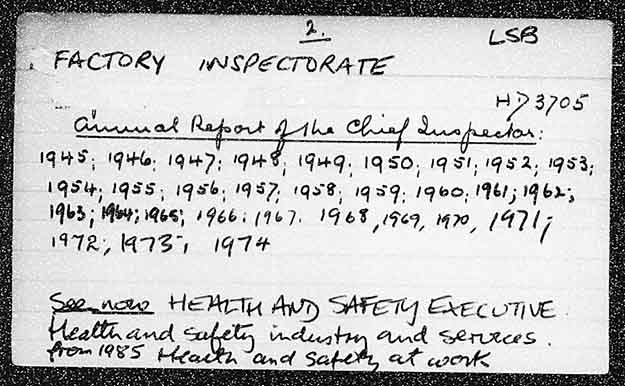 2. LSB
FACTORY INSPECTORATE
HD 3705
Annual Report of the Chief Inspector:
1945; 1946; 1947; 1948; 1949; 1950; 1951; 1952; 1953;
1954; 1955; 1956; 1957; 1958; 1959; 1960; 1961; 1962;
1963; 1964; 1965; 1966; 1967. 1968, 1969, 1970, 1971;
1972; 1973; 1974
See now HEALTH AND SAFETY EXECUTIVE.
Health and safety industry and services.
from 1985 Health and safety at work